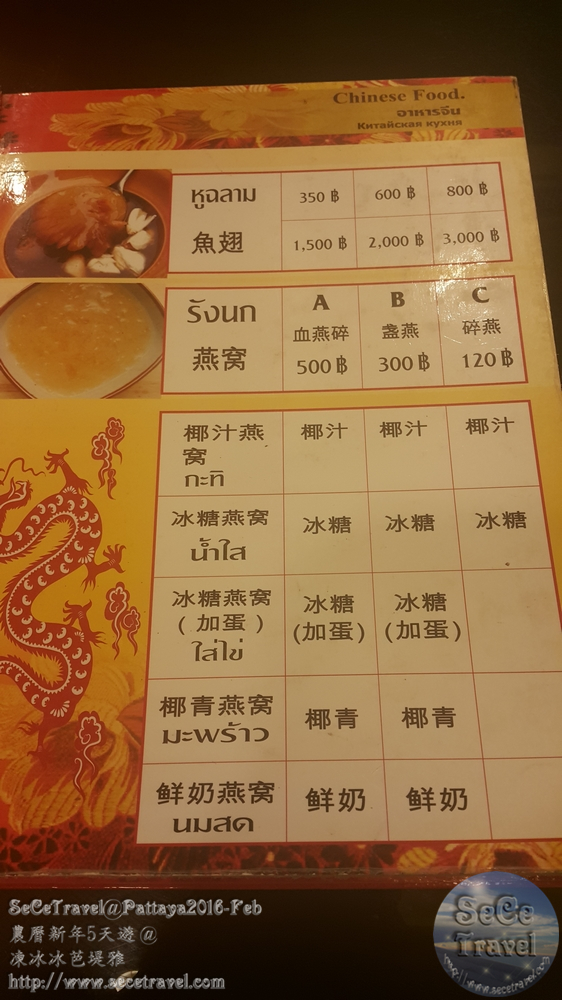 Chinese Food.
อาหารจีน
Китайская кухня
หูฉลาม 350 ฿ 600 ฿ 800 ฿
魚翅 1,500 ฿ 2,000 ฿ 3,000 ฿
รังนก A B C
血燕碎 盏燕 碎燕
燕窝 500 ฿ 300 ฿ 120 ฿
椰汁燕 椰汁 椰汁 椰汁
窝
กะทิ
冰糖燕窝 冰糖 冰糖 冰糖
น้ำใส
冰糖燕窝 冰糖 冰糖
(加蛋) (加蛋) (加蛋)
ใส่ไข่
椰青燕窝 椰青 椰青
มะพร้าว
鲜奶燕窝 鲜奶 鲜奶
นมสด
SeCeTravel@Pattaya2016-Feb
農曆新年5天遊@
凍冰冰芭堤雅
http://www.secetravel.com
SeCe
Travel
http://www.secetravel.com